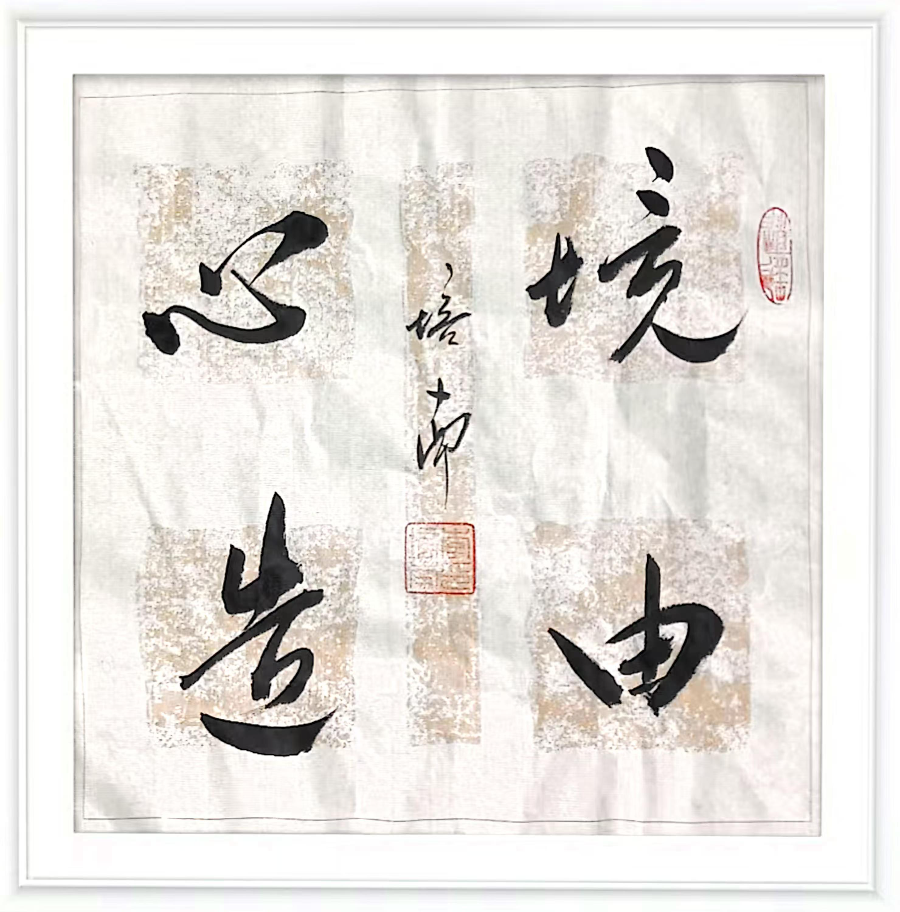 境由
心造
培南